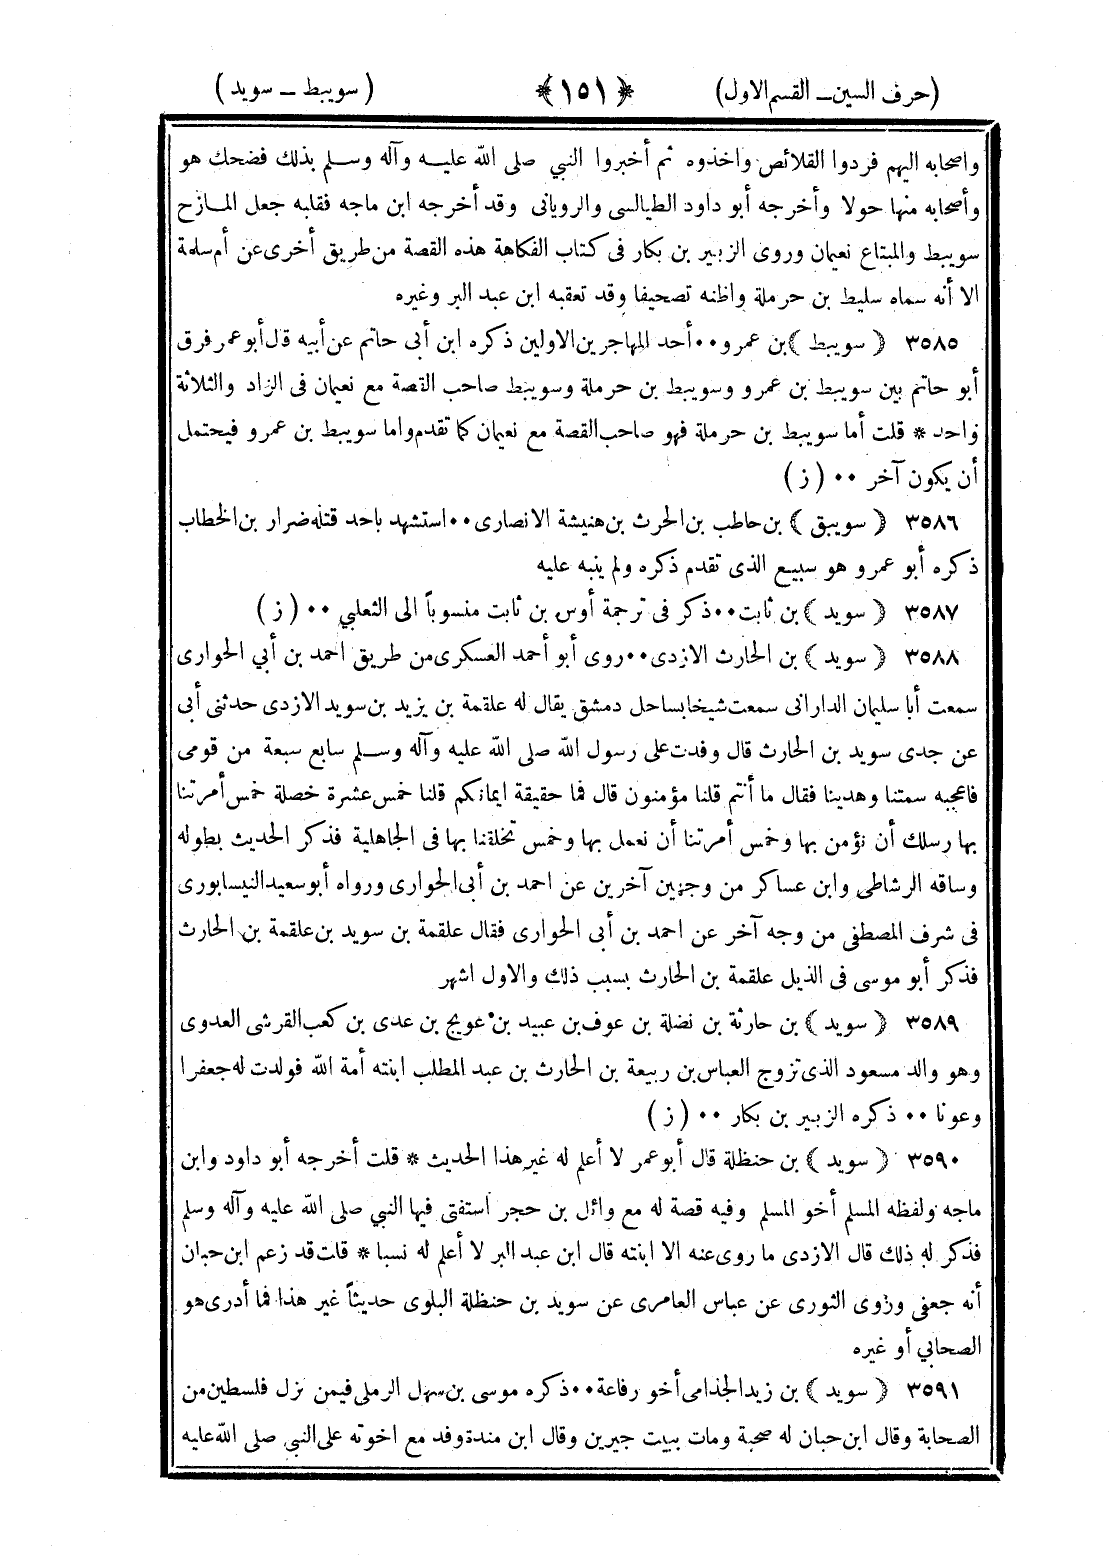 ( حرف السين ــ القسم الاول ) ﴿ ١٥١ ﴾ ( سويبط ــ سويد )
واصحابه اليهم فردوا القلائص واخذوه ثم أخبروا النبي صلى الله عليه وآله وسلم بذلك فضحك هو
وأصحابه منها حولا وأخرجه أبو داود الطيالسى والرويانى وقد أخرجه ابن ماجه فقلبه جعل المازح
سويبط والمبتاع نعيمان وروى الزبير بن بكار فى كتاب الفكاهة هذه القصة من طريق أخرى عن أم سلمة
الا أنه سماه سليط بن حرملة واظنه تصحيفا وقد تعقبه ابن عبد البر وغيره
٣٥٨٥ ﴿ سويبط ﴾ بن عمرو ٠٠ أحد المهاجرين الاولين ذكره ابن أبى حاتم عن أبيه قال أبو عمر فرق
أبو حاتم بين سويبط بن عمرو وسويبط بن حرملة وسويبط صاحب القصة مع نعيمان فى الزاد والثلاثة
واحد * قلت أما سويبط بن حرملة فهو صاحب القصة مع نعيمان كما تقدم واما سويبط بن عمرو فيحتمل
أن يكون آخر ٠٠ ( ز )
٣٥٨٦ ﴿ سويبق ﴾ بن حاطب بن الحرث بن هنيشة الانصارى ٠٠ استشهد باحد قتله ضرار بن الخطاب
ذكره أبو عمرو هو سبيع الذى تقدم ذكره ولم ينبه عليه
٣٥٨٧ ﴿ سويد ﴾ بن ثابت ٠٠ ذكر فى ترجمة أوس بن ثابت منسوباً الى الثعلبي ٠٠ ( ز )
٣٥٨٨ ﴿ سويد ﴾ بن الحارث الازدى ٠٠ روى أبو أحمد العسكرى من طريق احمد بن أبي الحوارى
سمعت أبا سليمان الدارانى سمعت شيخا بساحل دمشق يقال له علقمة بن يزيد بن سويد الازدى حدثنى أبى
عن جدى سويد بن الحارث قال وفدت على رسول الله صلى الله عليه وآله وسلم سابع سبعة من قومى
فاعجبه سمتنا وهدينا فقال ما أنتم قلنا مؤمنون قال فما حقيقة ايمانكم قلنا خمس عشرة خصلة خمس أمرتنا
بها رسلك أن نؤمن بها وخمس أمرتنا أن نعمل بها وخمس تخلقنا بها فى الجاهلية فذكر الحديث بطوله
وساقه الرشاطى وابن عساكر من وجهين آخرين عن احمد بن أبى الحوارى ورواه أبو سعيد النيسابورى
فى شرف المصطفى من وجه آخر عن احمد بن أبى الحوارى فقال علقمة بن سويد بن علقمة بن الحارث
فذكر أبو موسى فى الذيل علقمة بن الحارث بسبب ذلك والاول اشهر
٣٥٨٩ ﴿ سويد ﴾ بن حارثة بن نضلة بن عوف بن عبيد بن عويج بن عدى بن كعب القرشى العدوى
وهو والد مسعود الذى تزوج العباس بن ربيعة بن الحارث بن عبد المطلب ابنته أمة الله فولدت له جعفرا
وعونا ٠٠ ذكره الزبير بن بكار ٠٠ ( ز )
٣٥٩٠ ﴿ سويد ﴾ بن حنظلة قال أبو عمر لا أعلم له غير هذا الحديث * قلت أخرجه أبو داود وابن
ماجه ولفظه المسلم أخو المسلم وفيه قصة له مع وائل بن حجر استفتى فيها النبي صلى الله عليه وآله وسلم
فذكر له ذلك قال الازدى ما روى عنه الا ابنته قال ابن عبد البر لا أعلم له نسبا * قلت قد زعم ابن حبان
أنه جعفى وروى الثورى عن عباس العامرى عن سويد بن حنظلة البلوى حديثاً غير هذا فما أدرى هو
الصحابي أو غيره
٣٥٩١ ﴿ سويد ﴾ بن زيد الجذامى أخو رفاعة ٠٠ ذكره موسى بن سهل الرملى فيمن نزل فلسطين من
الصحابة وقال ابن حبان له صحبة ومات ببيت جبرين وقال ابن مندة وفد مع اخوته على النبي صلى الله عليه